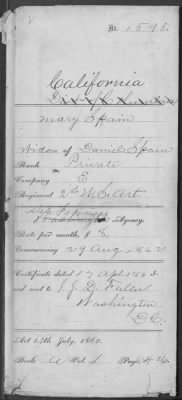 No. 1595.
California
Mary Spain
Widow of Daniel Spain
Rank Private
Company E
Regiment 2d U.S. Art
Agency.
Rate per month, $ 8.
Commencing 29 Aug. 1862
Certificate dated 17 Apl 1863
and sent to J. J. D. Fuller
Washington
D.C.
Act 14th July, 1862.
Book A Vol. Page